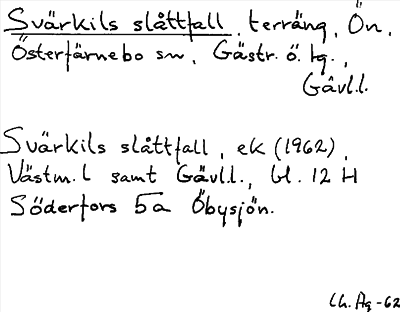 Svärkils slåttfall, terräng, Ön,
Österfärnebo sn, Gästr. ö. tg.,
Gävl.l.
Svärkils slåttfall, ek (1962),
Västm.l samt Gävl.l., bl. 12 H
Söderfors 5a Öbysjön.
Ch. Ag -62